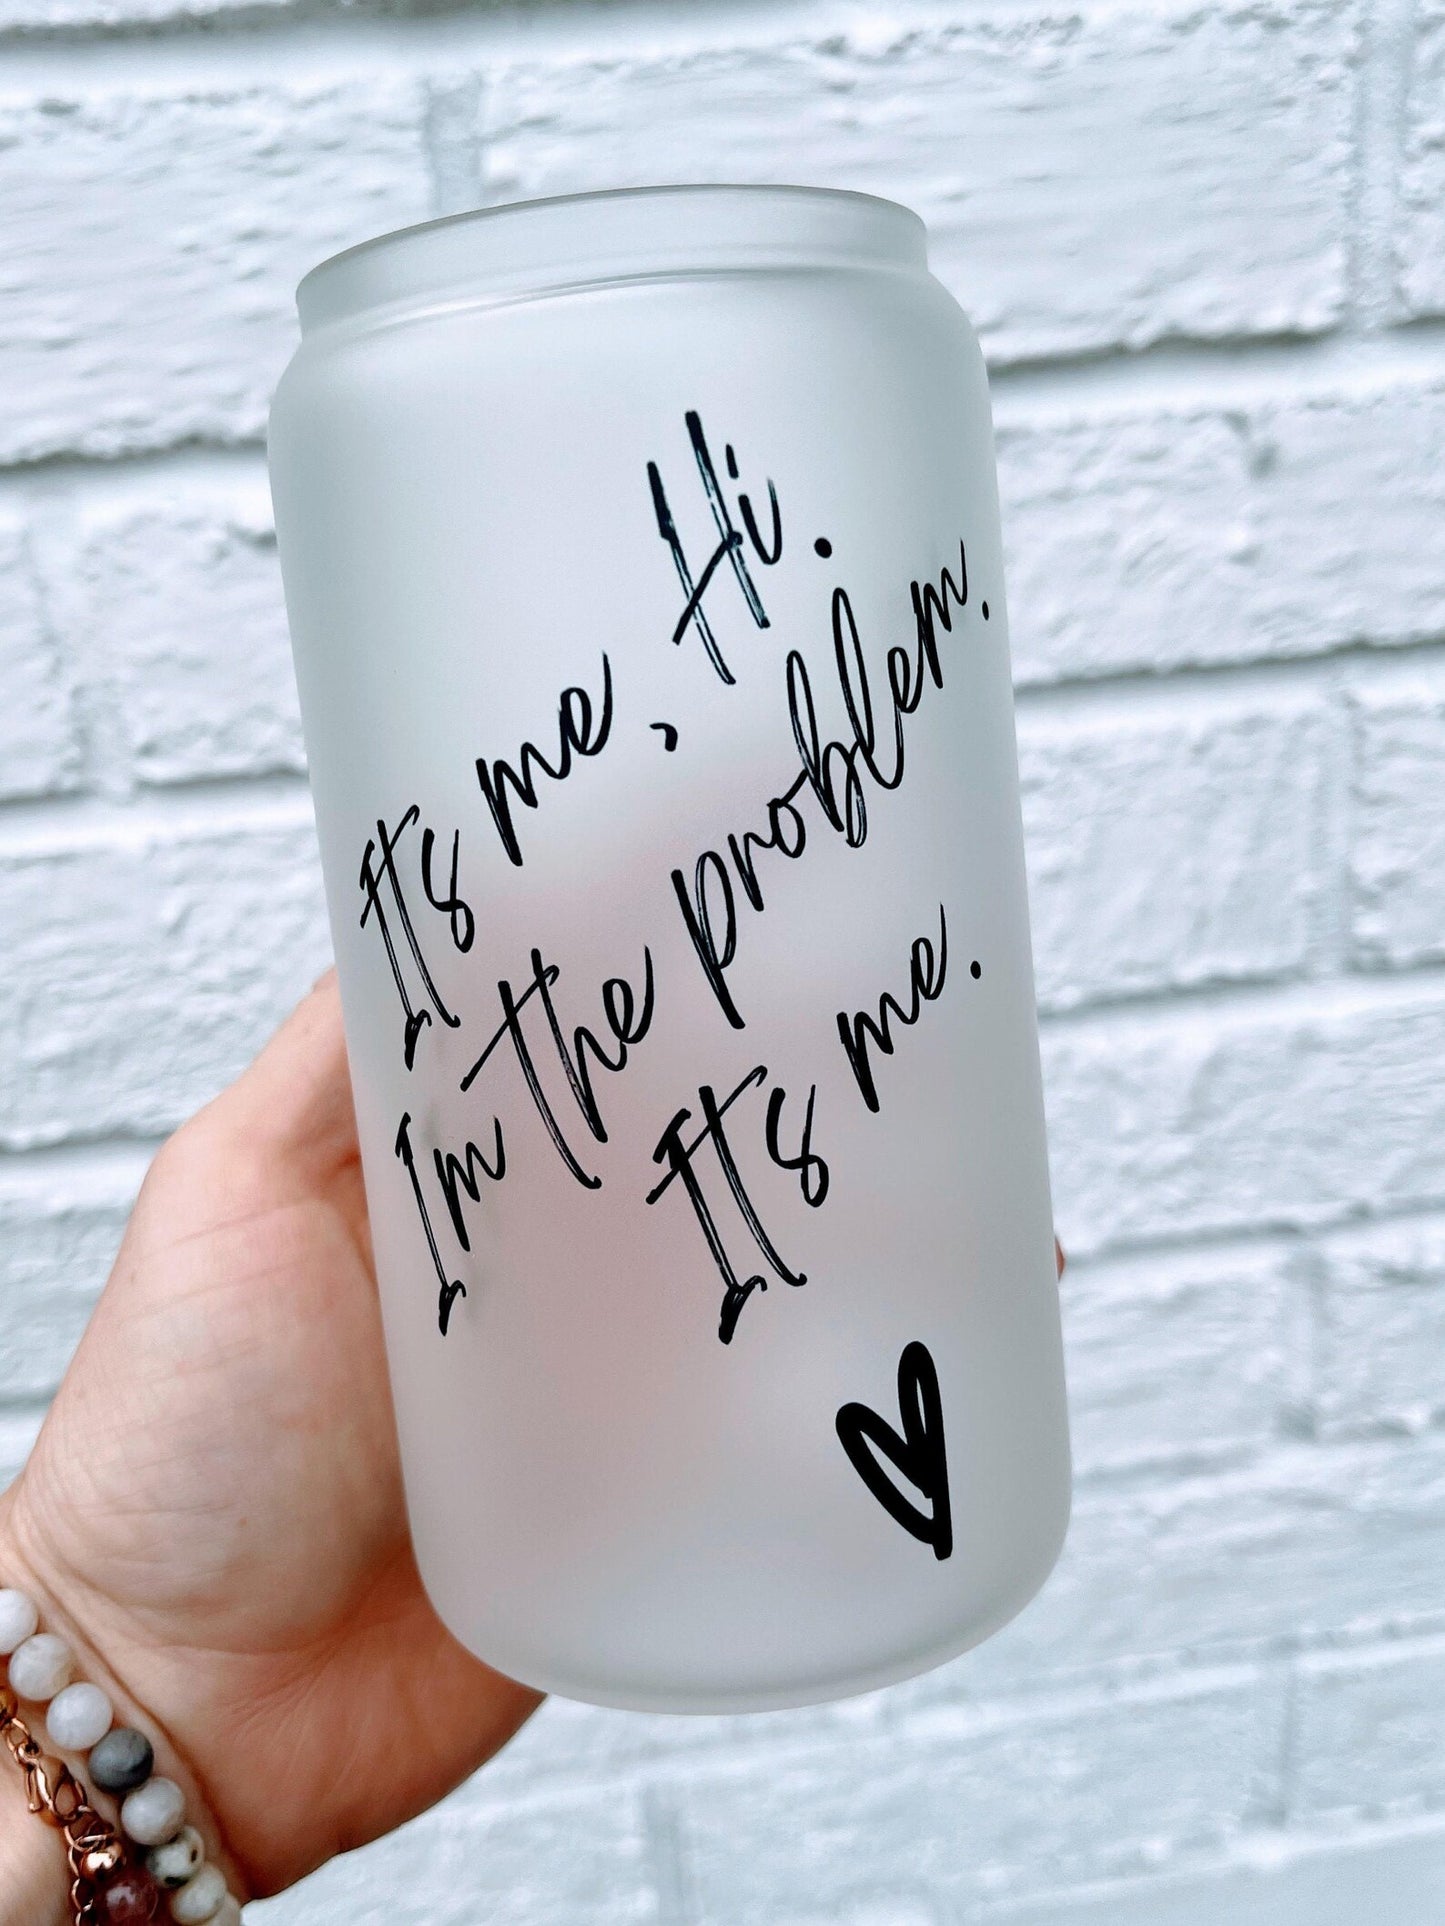 Its me, Hi.
Im the problem.
Its me.